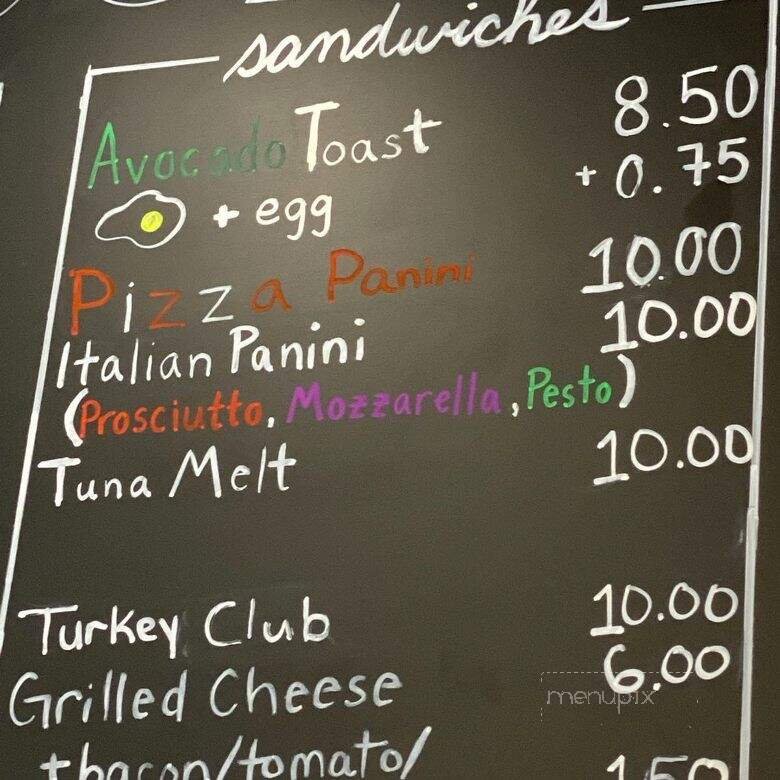 sandwiches
Avocado Toast 8.50
+ egg + 0.75
Pizza Panini 10.00
Italian Panini 10.00
(Prosciutto, Mozzarella, Pesto)
Tuna Melt 10.00
Turkey Club 10.00
Grilled Cheese 6.00
menupix
+bacon/tomato/ 1.50